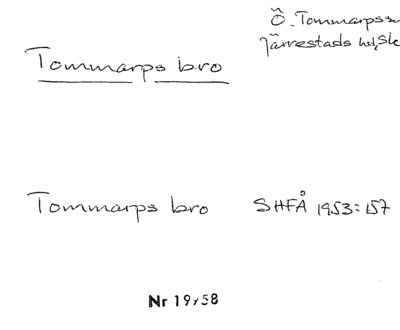 Ö. Tommarps sn
Järrestads hd, Sk
Tommarps bro
Tommarps bro SHFÅ 1953:157
Nr 19/58